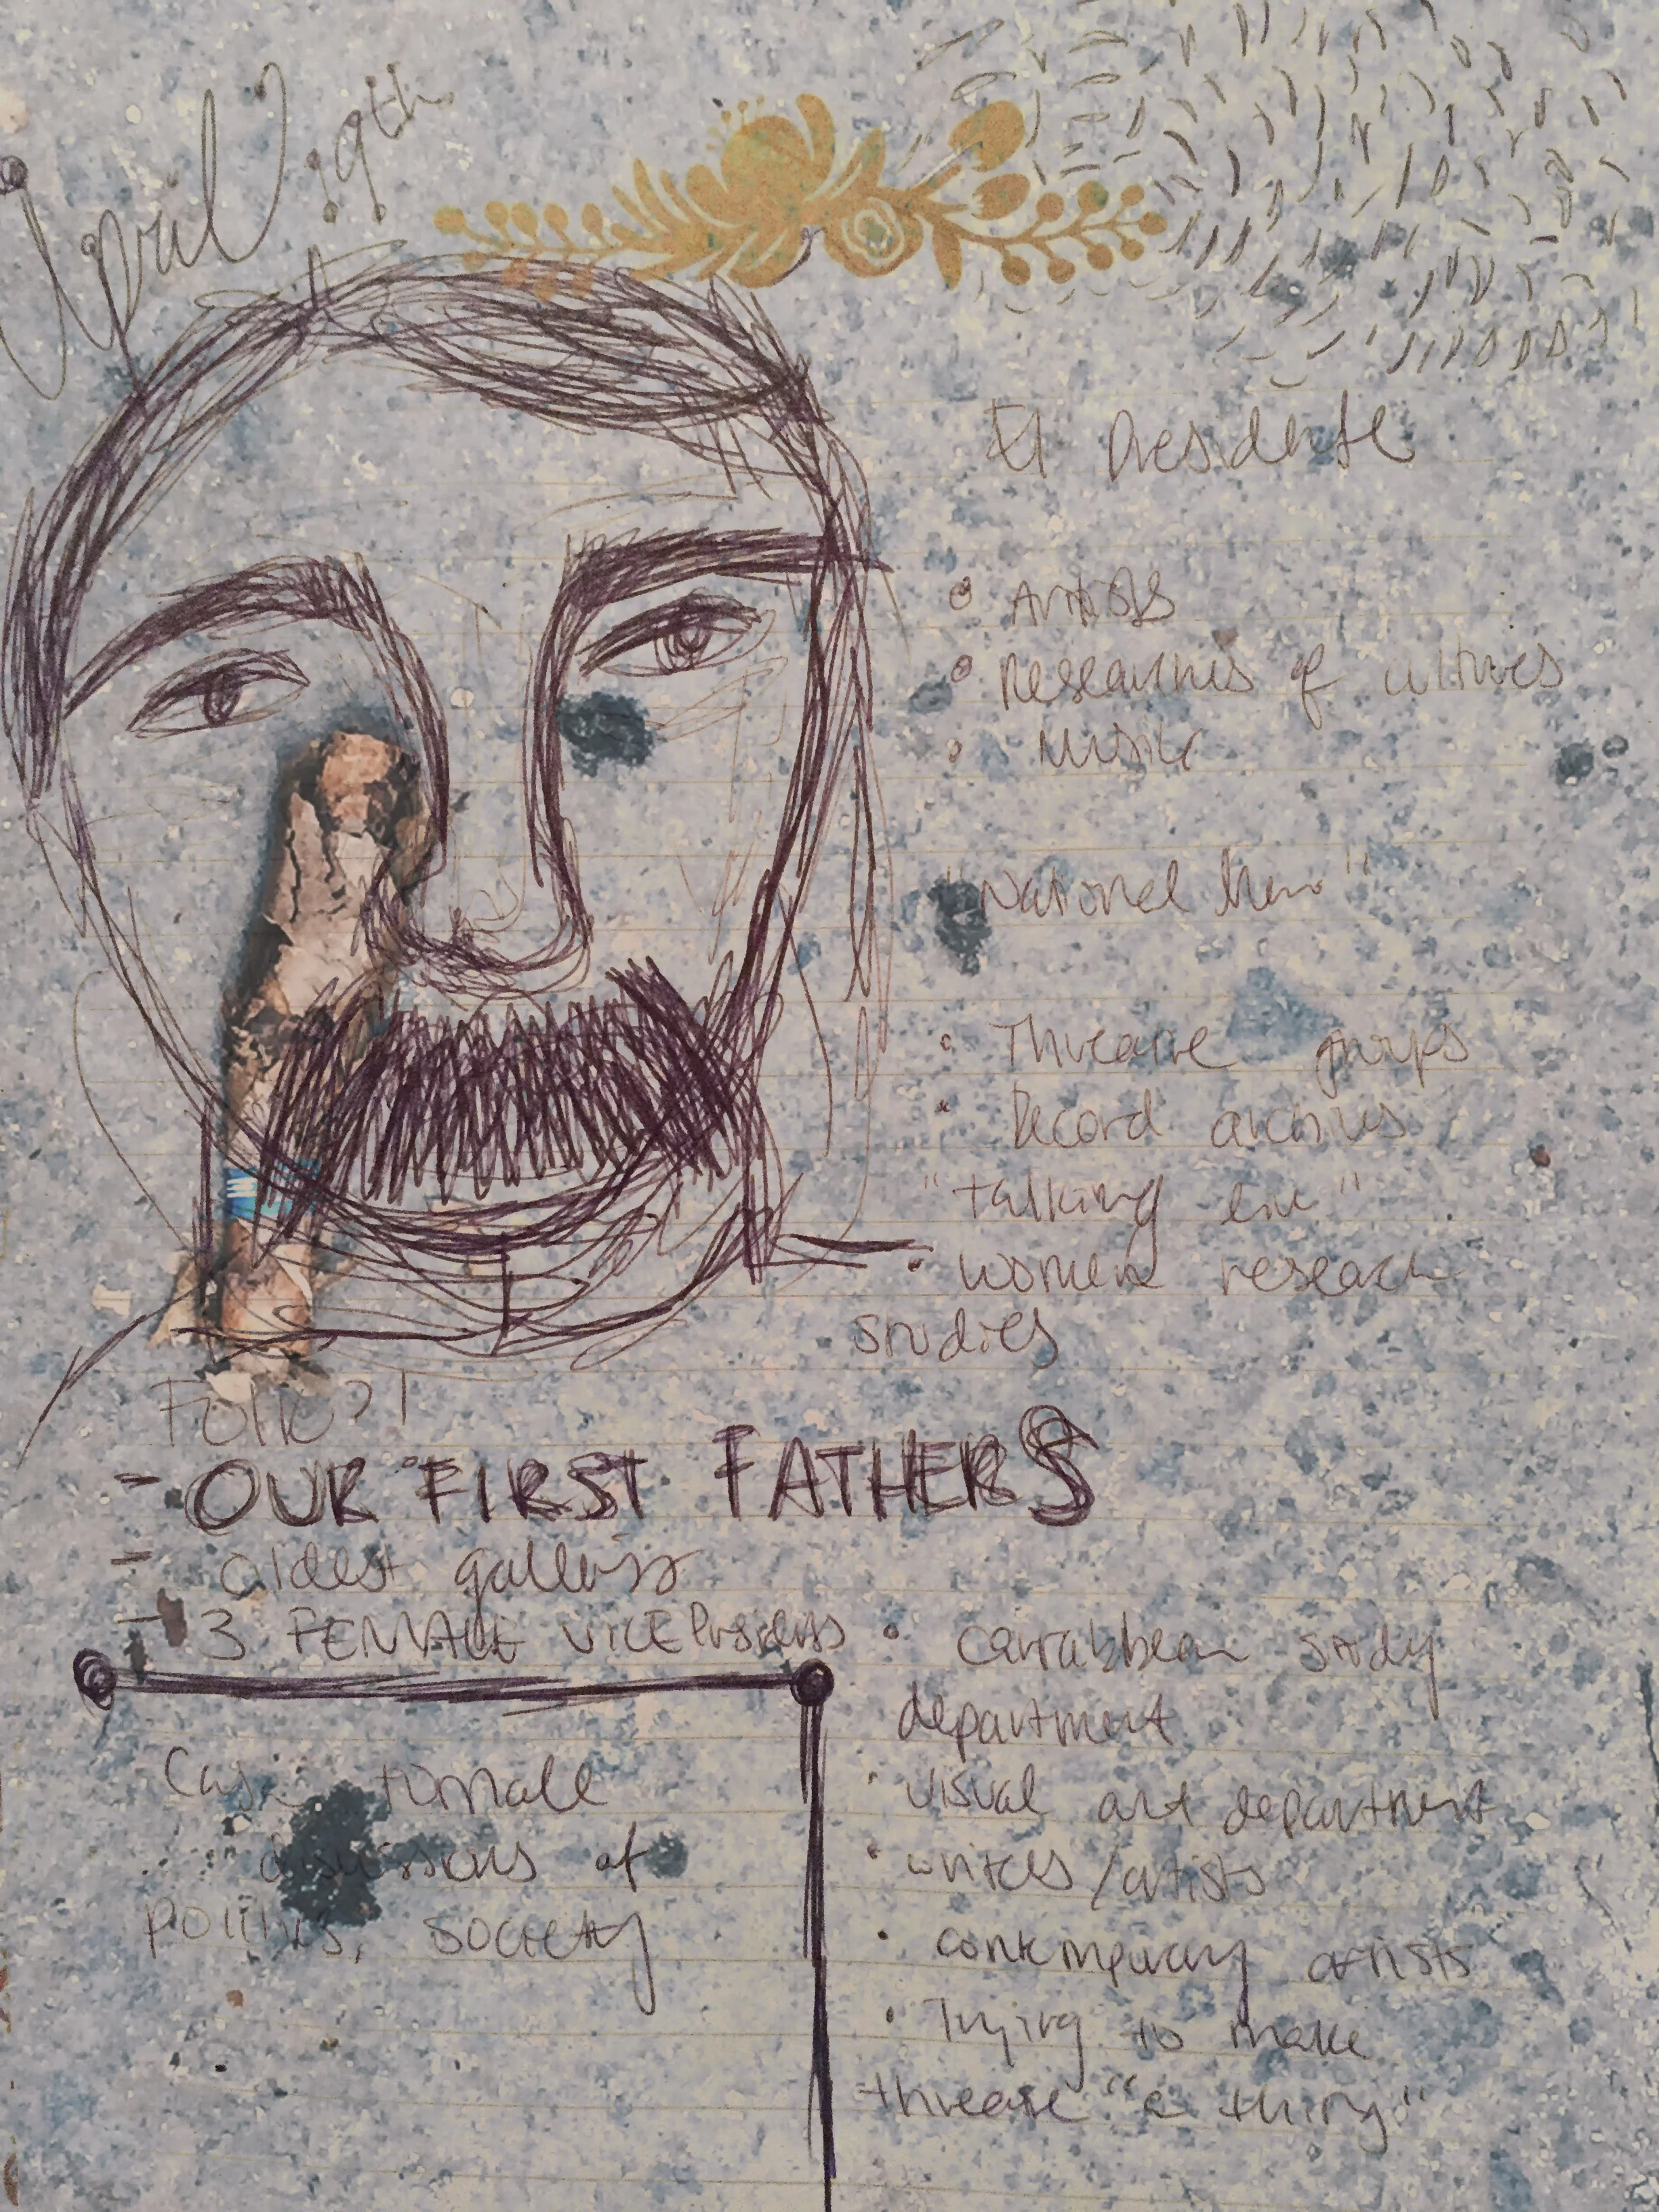 April 19th
El Presidente
Artists
Researchers of cultures
Music
"National hero"
Threatre groups
Record archives
"talking live"
women research
studies
Folk?!
- OUR FIRST FATHERS
- oldest gallery
- 3 FEMALE VICE Presidents
Casa
discussions of
politics, society
Carrabbean study
department
visual art department
writers/artists
contemporary artists
Trying to make
threatre "a thing"